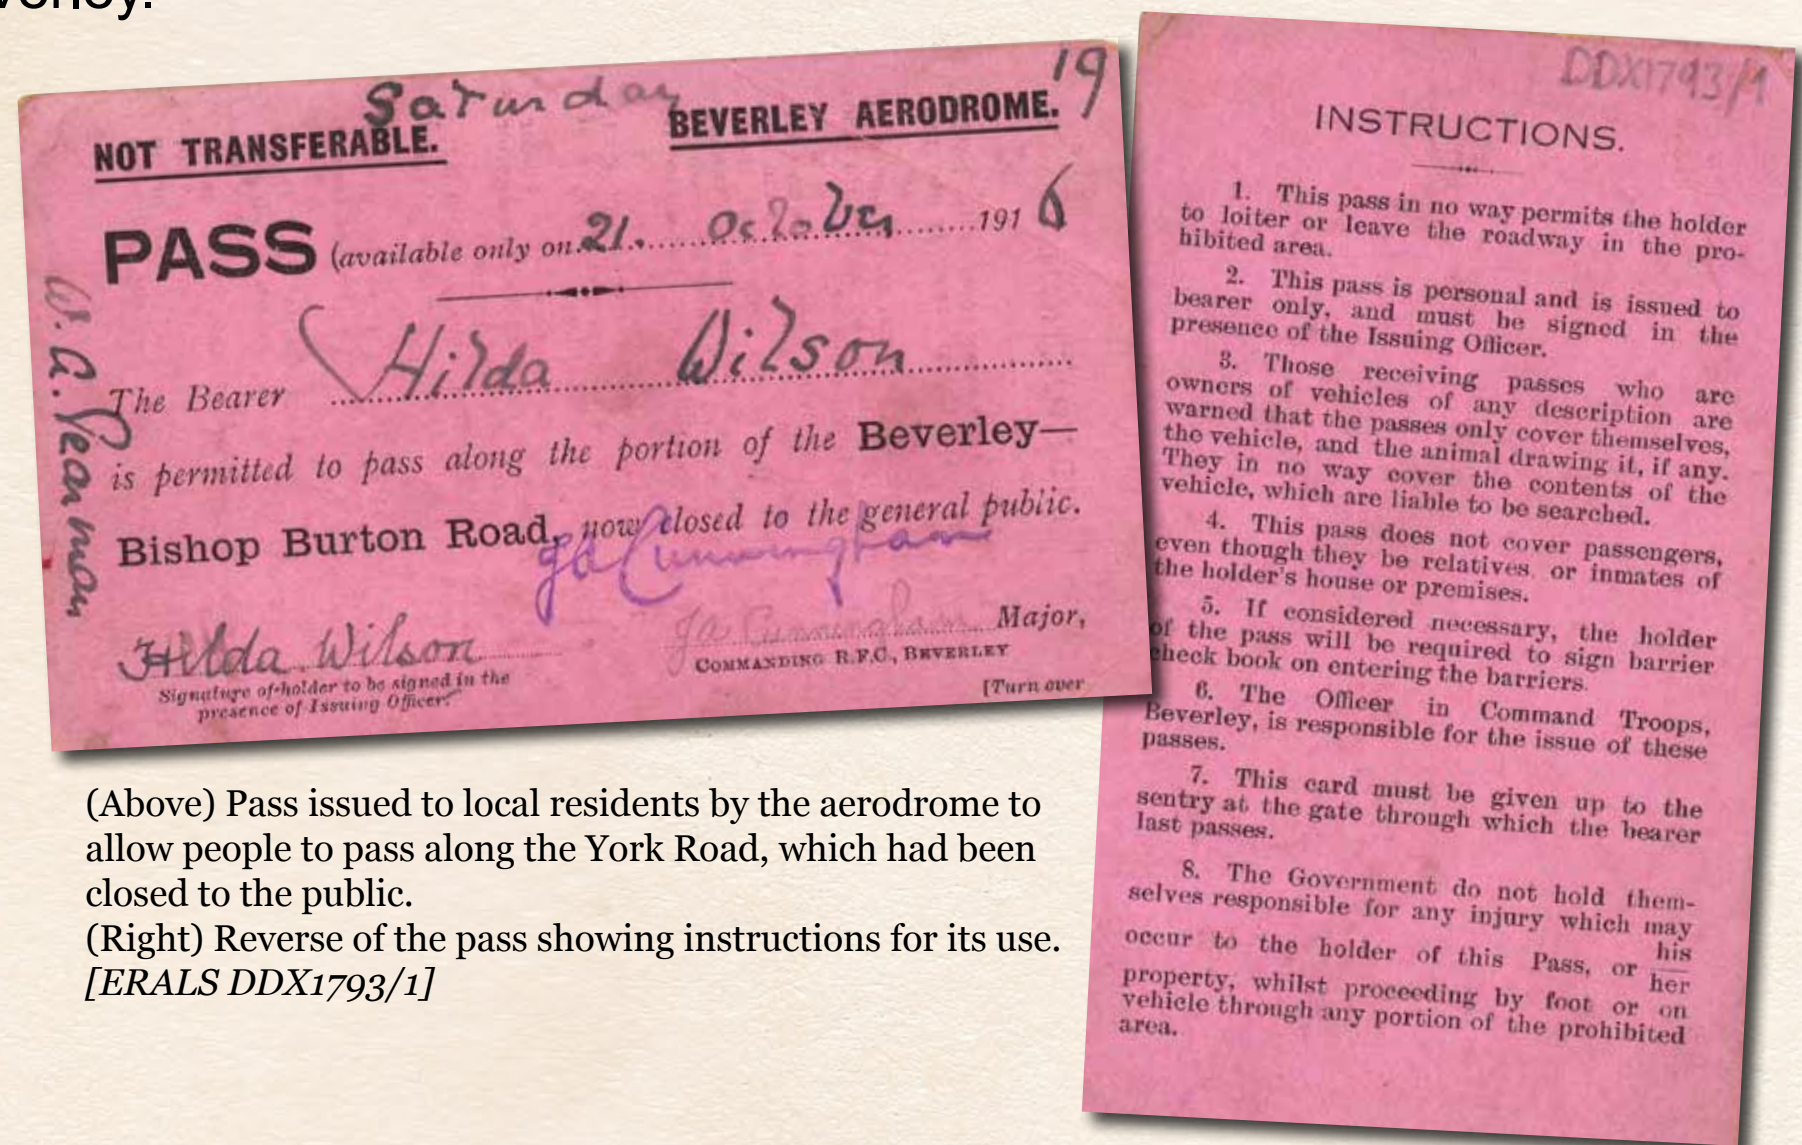 Saturday
19
NOT TRANSFERABLE.
BEVERLEY AERODROME.
PASS (available only on 21. October 1916
The Bearer Hilda Wilson
is permitted to pass along the portion of the Beverley—
Bishop Burton Road, now closed to the general public.
J A Cunningham
W. A. Pearman
Hilda Wilson
Signature of holder to be signed in the
presence of Issuing Officer.
J A Cunningham Major,
COMMANDING R.F.C., BEVERLEY
[Turn over
DDX1793/1
INSTRUCTIONS.
1. This pass in no way permits the holder
to loiter or leave the roadway in the pro-
hibited area.
2. This pass is personal and is issued to
bearer only, and must be signed in the
presence of the Issuing Officer.
3. Those receiving passes who are
owners of vehicles of any description are
warned that the passes only cover themselves,
the vehicle, and the animal drawing it, if any.
They in no way cover the contents of the
vehicle, which are liable to be searched.
4. This pass does not cover passengers,
even though they be relatives or inmates of
the holder's house or premises.
5. If considered necessary, the holder
of the pass will be required to sign barrier
check book on entering the barriers.
6. The Officer in Command Troops,
Beverley, is responsible for the issue of these
passes.
7. This card must be given up to the
sentry at the gate through which the bearer
last passes.
8. The Government do not hold them-
selves responsible for any injury which may
occur to the holder of this Pass, or his
her
property, whilst proceeding by foot or on
vehicle through any portion of the prohibited
area.
(Above) Pass issued to local residents by the aerodrome to
allow people to pass along the York Road, which had been
closed to the public.
(Right) Reverse of the pass showing instructions for its use.
[ERALS DDX1793/1]